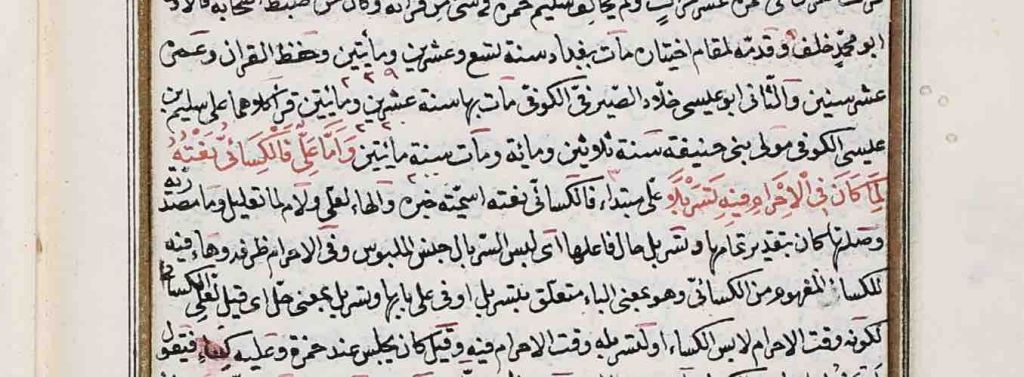 ابو محمد خلف وقدمه لمقام اختيان مات ببغداد سنة تسع وعشرين ومأيتين وحفظ القران وعمره
عشر سنين والثانى ابو عيسى خلاد الصيرفى الكوفى مات بها سنة عشرين ومايتين قرا كلاهما على سليم بن
عليسى الكوفى مولى بنى حنيفة سنة ثلاثين ومائة ومات سنة مائيتين وَاَمَّا عَلِىٌّ فَالْكِسَائِىُّ نَعْتُهُ
لِمَا كَانَ فِى الْاِحْرَامِ فِيهِ تَسَرْبَلَا على مبتداء فالكسائى نعته اسميّة خبره والهاء لعلى ولام لما تعليل وما مصدرية
وصلتها كان بتقدير تمامها وتسربل حال فاعلها اى لبس السربال جنس الملبوس وفى الاحرام ظرفه وهاء فيه
للكساء المفهوم من الكسائى وهو بمعنى الباء متعلق بتسربل او فى على بابها وتسربل بمعنى حل اى قيل لعلى الكسائى
لكونه وقت الاحرام لابس الكساء او لتسربله وقت الاحرام فيه وقيل كان يجلس عند حمزة وعليه كساء فيقول